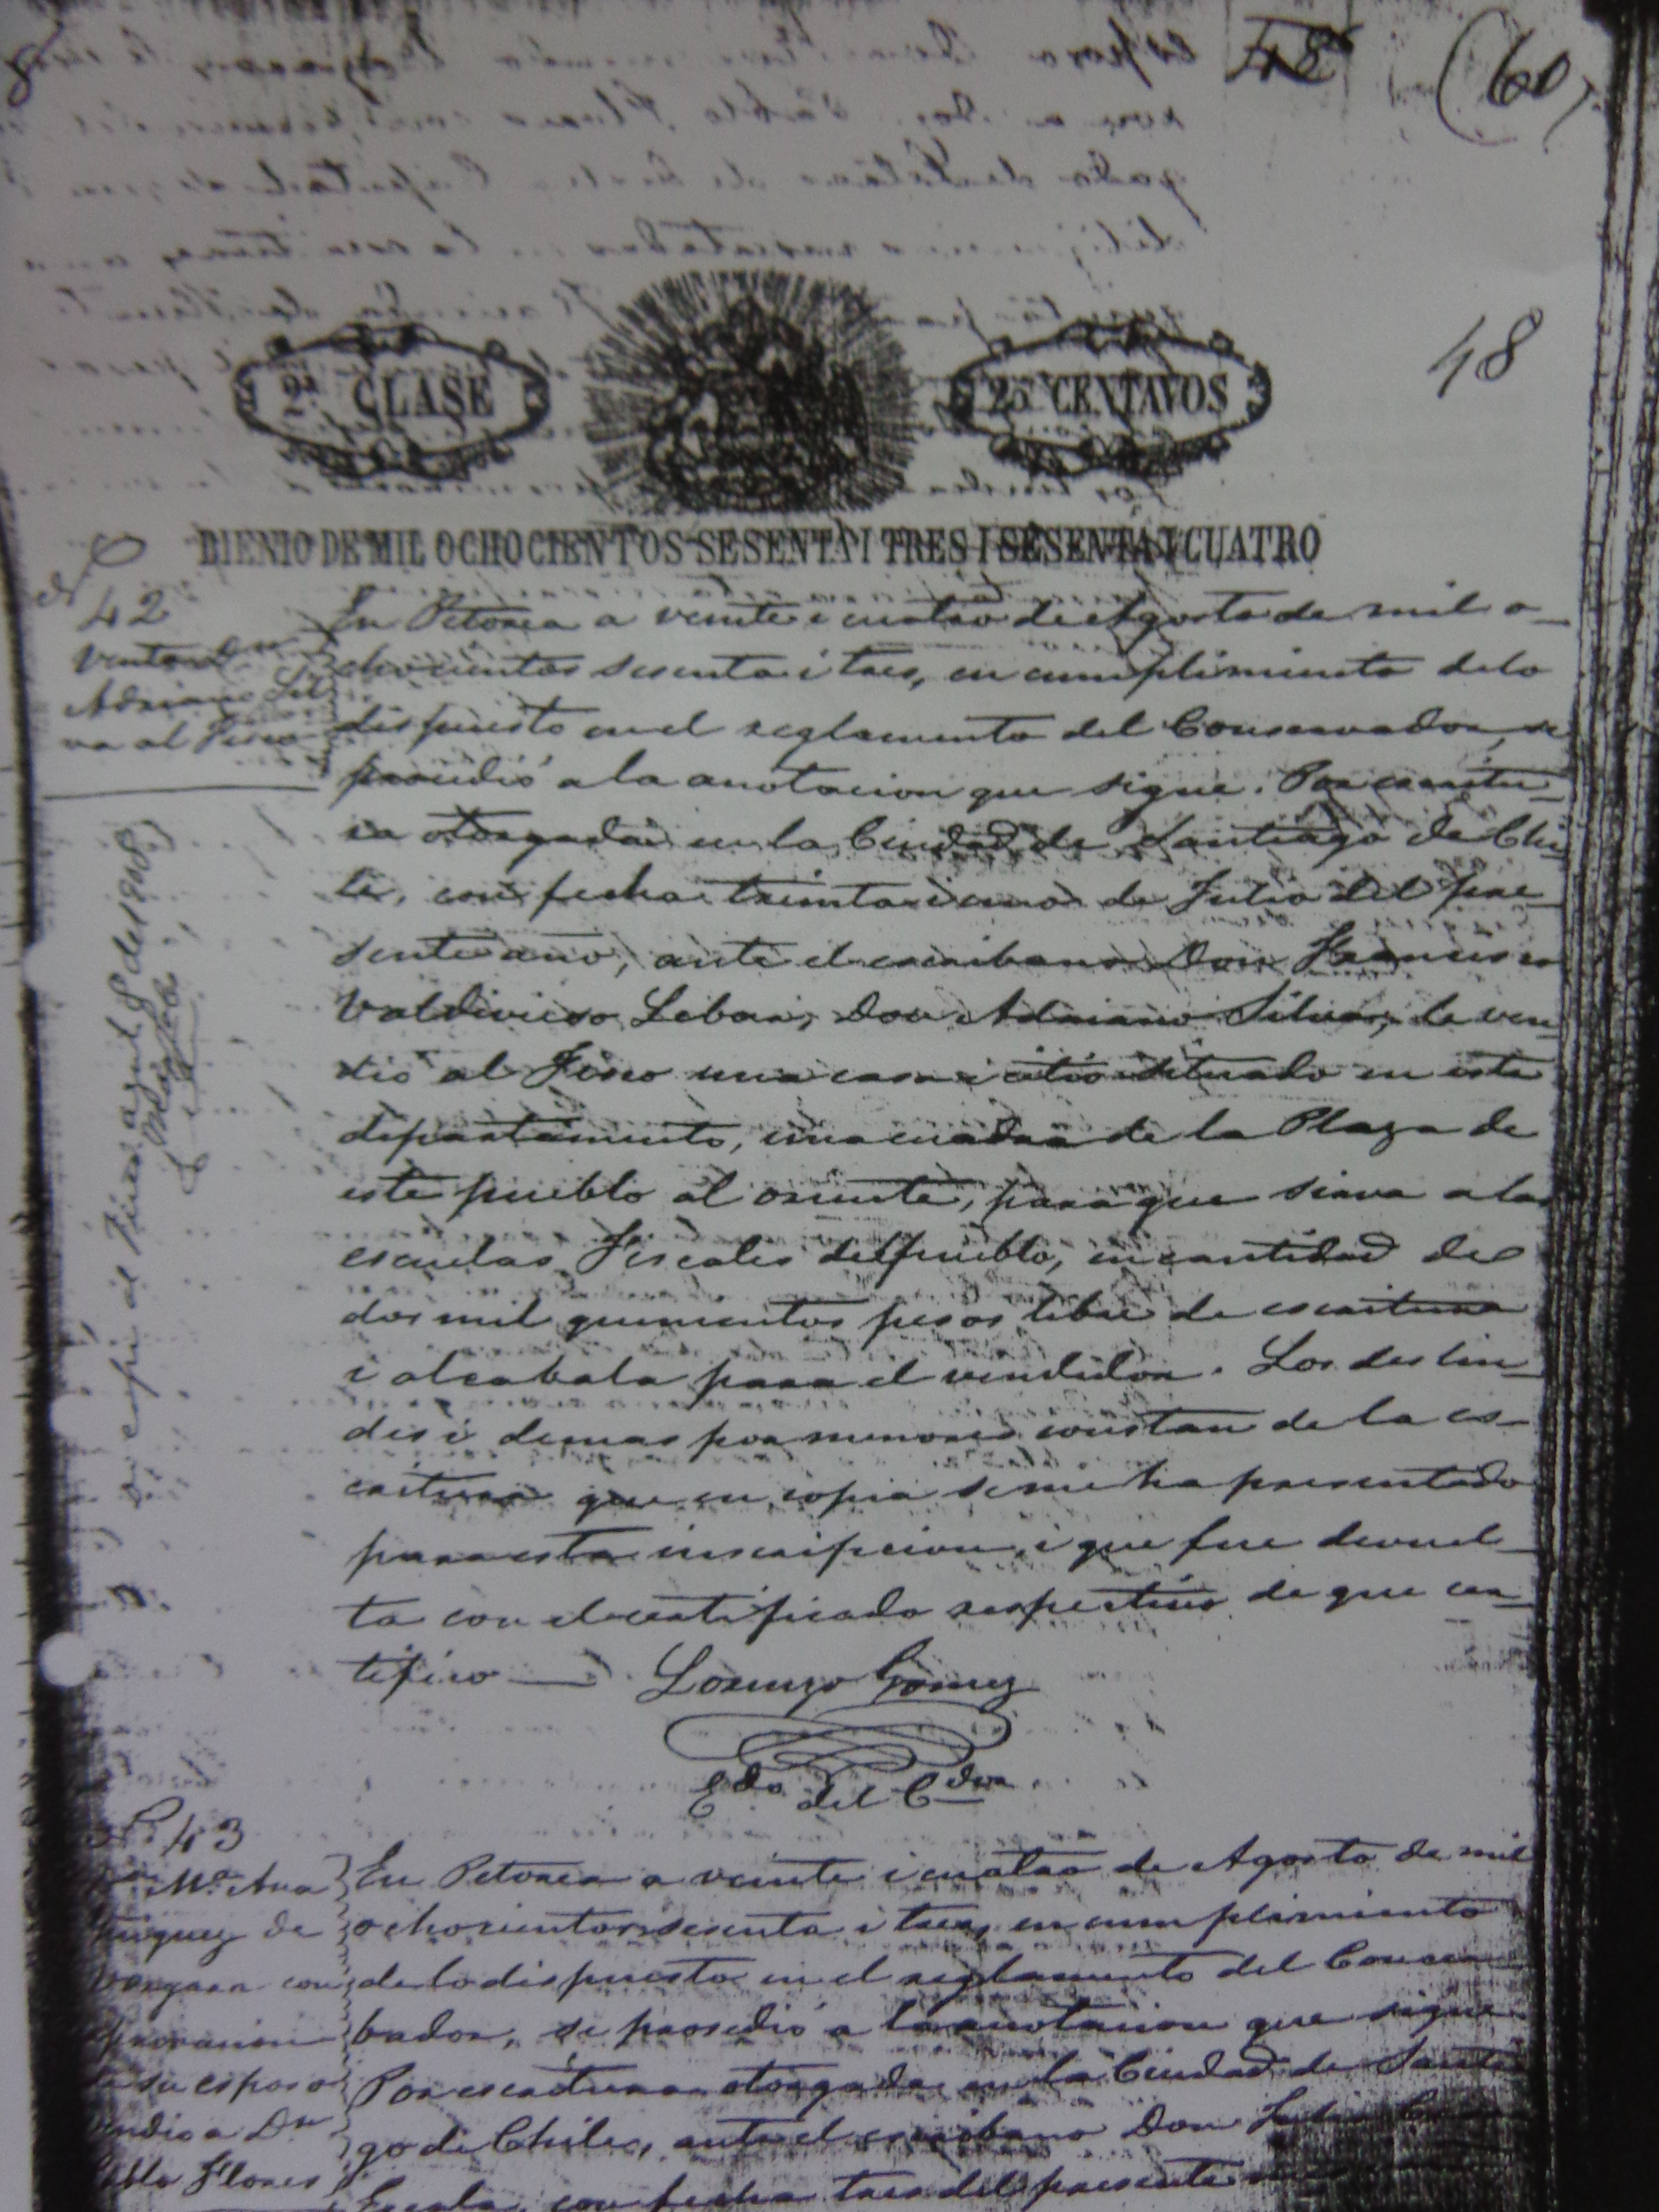 48
(60)
48
2ª CLASE
25 CENTAVOS
BIENIO DE MIL OCHOCIENTOS SESENTA I TRES I SESENTA I CUATRO
Nº
42
Venta Dn
Adriano Sil
va al Fisco
En Petorca a veinte i cuatro de Agosto de mil o-
chocientos sesenta i tres, en cumplimiento de lo
dispuesto en el reglamento del Conservador, se
procedió a la anotacion que sigue. Por escritu-
ra otorgada en la Ciudad de Santiago de Chi-
le, con fecha treinta i uno de Julio del pre-
sente año, ante el escribano Don Francisco
Valdivieso Lebar, Don Adriano Silva, le ven-
dió al Fisco una casa i sitio situado en este
departamento, una cuadra de la Plaza de
este pueblo al oriente, para que sirva a las
escuelas Fiscales del pueblo, en cantidad de
dos mil quinientos pesos libre de escritura
i alcabala para el vendedor. Los deslin-
des i demas por menores constan de la es-
critura que en copia se me ha presentado
para esta inscripcion, i que fue devuel-
ta con el certificado respectivo de que cer-
tifico — Lorenzo Gomez
Edo del Cdor
di copia al Fisco agust 8 de 1908
Nº 43
Mª Ana
iguez de
Vergara con
su esposo
vendio a Dn
Pablo Flores
En Petorca a veinte i cuatro de Agosto de mil
ochocientos sesenta i tres, en cumplimiento
de lo dispuesto en el reglamento del Conser
bador, se procedió a la anotacion que sigue
Por escritura otorgada en la Ciudad de Santia
go de Chile, ante el escribano Don
Escala, con fecha tres del presente